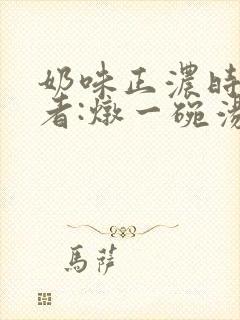 奶味正濃時
者:燉一碗湯
馬薩